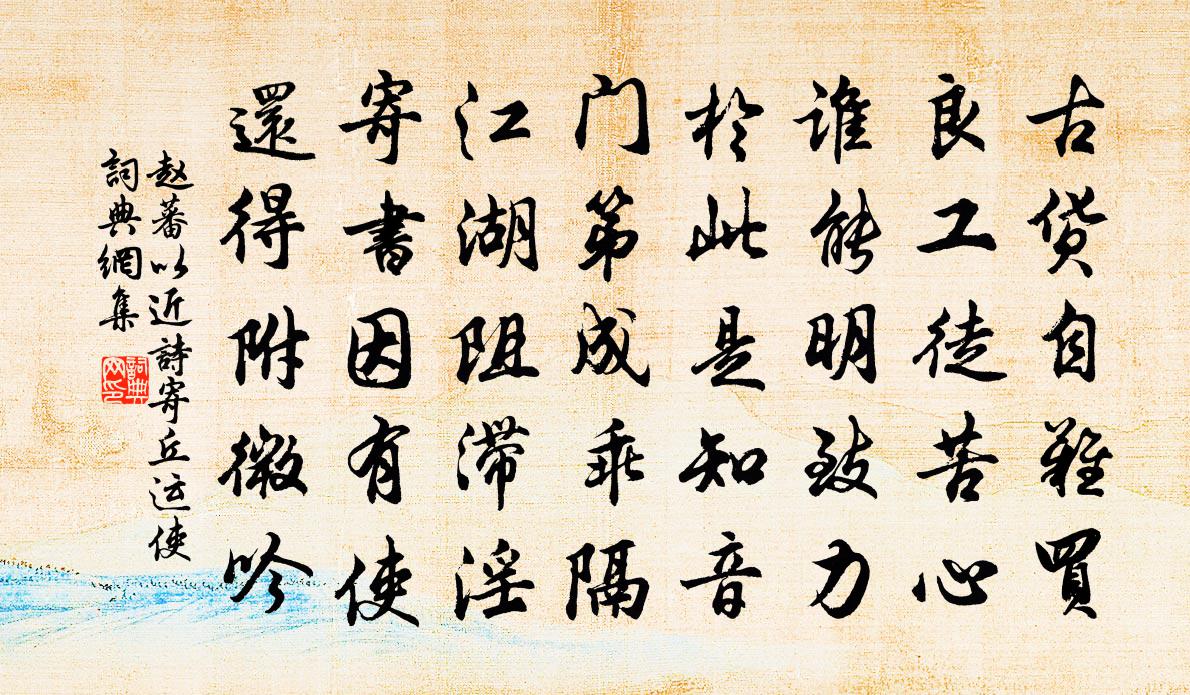 古货自難買
良工徒苦心
谁能明致力
於此是知音
门第成乖隔
江湖阻滞淫
寄書因有使
還得附微吟
赵蕃以近詩寄丘运使
詞典網集
詞典
网印